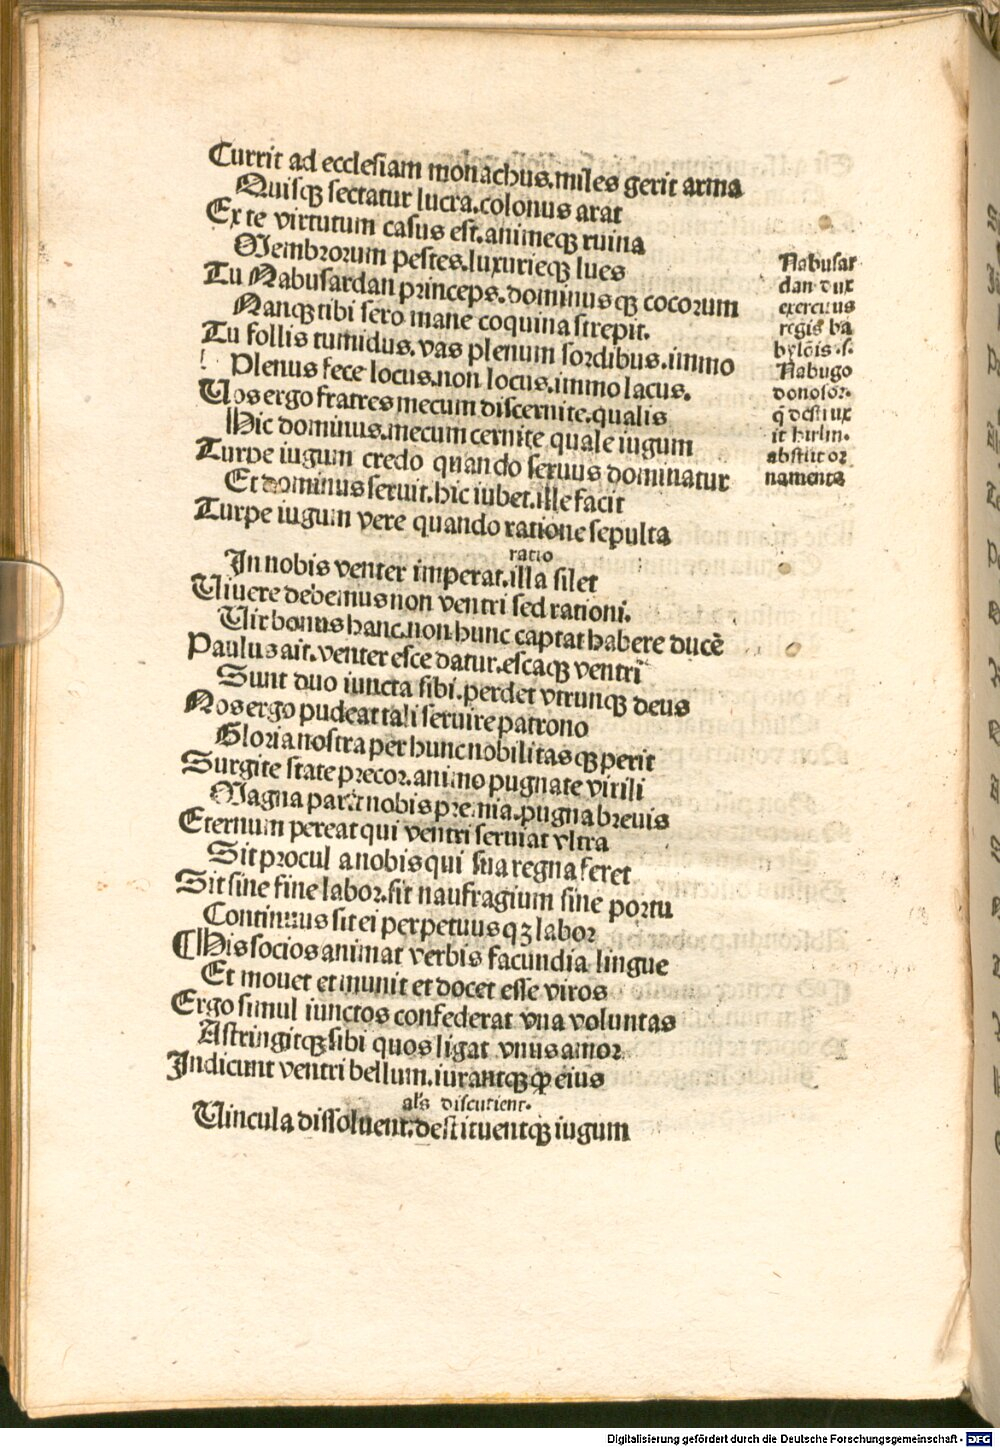 Currit ad ecclesiam monachus.miles gerit arma
Quisqꝫ sectatur lucra.colonus arat
Ex te virtutum casus est.animeqꝫ ruina
Membrorum pestes.luxurieqꝫ lues
Tu Nabusardan princeps.dominusqꝫ cocorum
Nanqꝫ tibi sero mane coquina strepit.
Tu follis tumidus.vas plenum sordibus.immo
Plenus fece locus.non locus.immo lacus.
Uos ergo fratres mecum discernite.qualis
Hic dominus.mecum cernite quale iugum
Turpe iugum credo quando seruus dominatur
Et dominus seruit.hic iubet.ille facit
Turpe iugum vere quando ratione sepulta
ratio
In nobis venter imperat.illa silet
Uiuere debemus non ventri sed rationi.
Uir bonus hanc.non hunc captat habere ducē
Paulus ait.venter esce datur.escaqꝫ ventri
Sunt duo iuncta sibi.perdet vtrunqꝫ deus
Nos ergo pudeat tali seruire patrono
Gloria nostra per hunc nobilitasqꝫ perit
Surgite state precor.animo pugnate virili
Magna parat nobis premia.pugna breuis
Eternum pereat qui ventri seruiat vltra
Sit procul a nobis qui sua regna feret
Sit sine fine labor.sit naufragium sine portu
Continuus sit ei perpetuusqꝫ labor
¶His socios animat verbis facundia lingue
Et mouet et munit et docet esse viros
Ergo simul iunctos confederat vna voluntas
Astringitqꝫ sibi quos ligat vnus amor
Indicunt ventri bellum.iurantqꝫ ꝙ eius
als discutient.
Uincula dissoluent.destituentqꝫ iugum
Nabusar
dan dux
exercitus
regis ba
bylōis .s.
Nabugo
donosor.
q̄ destrux
it hirlm.
abstlit or
namenta
Digitalisierung gefördert durch die Deutsche Forschungsgemeinschaft - DFG